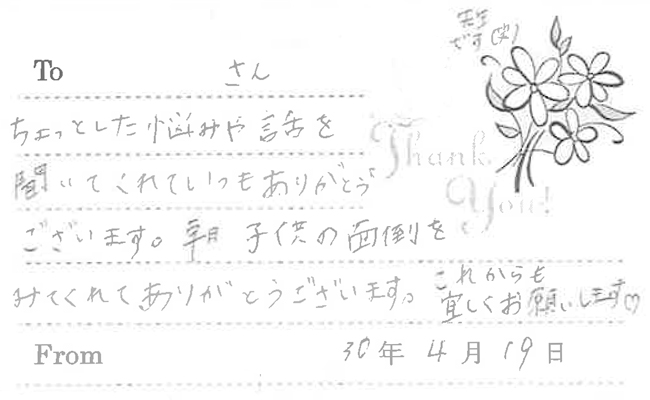 To さん
ちょっとした悩みや話を
聞いてくれていつもありがとう
ございます。朝 子供の面倒を
みてくれてありがとうございます。これからも
宜しくお願いします♡
From 30年4月19日
Thank
You!
です(笑)